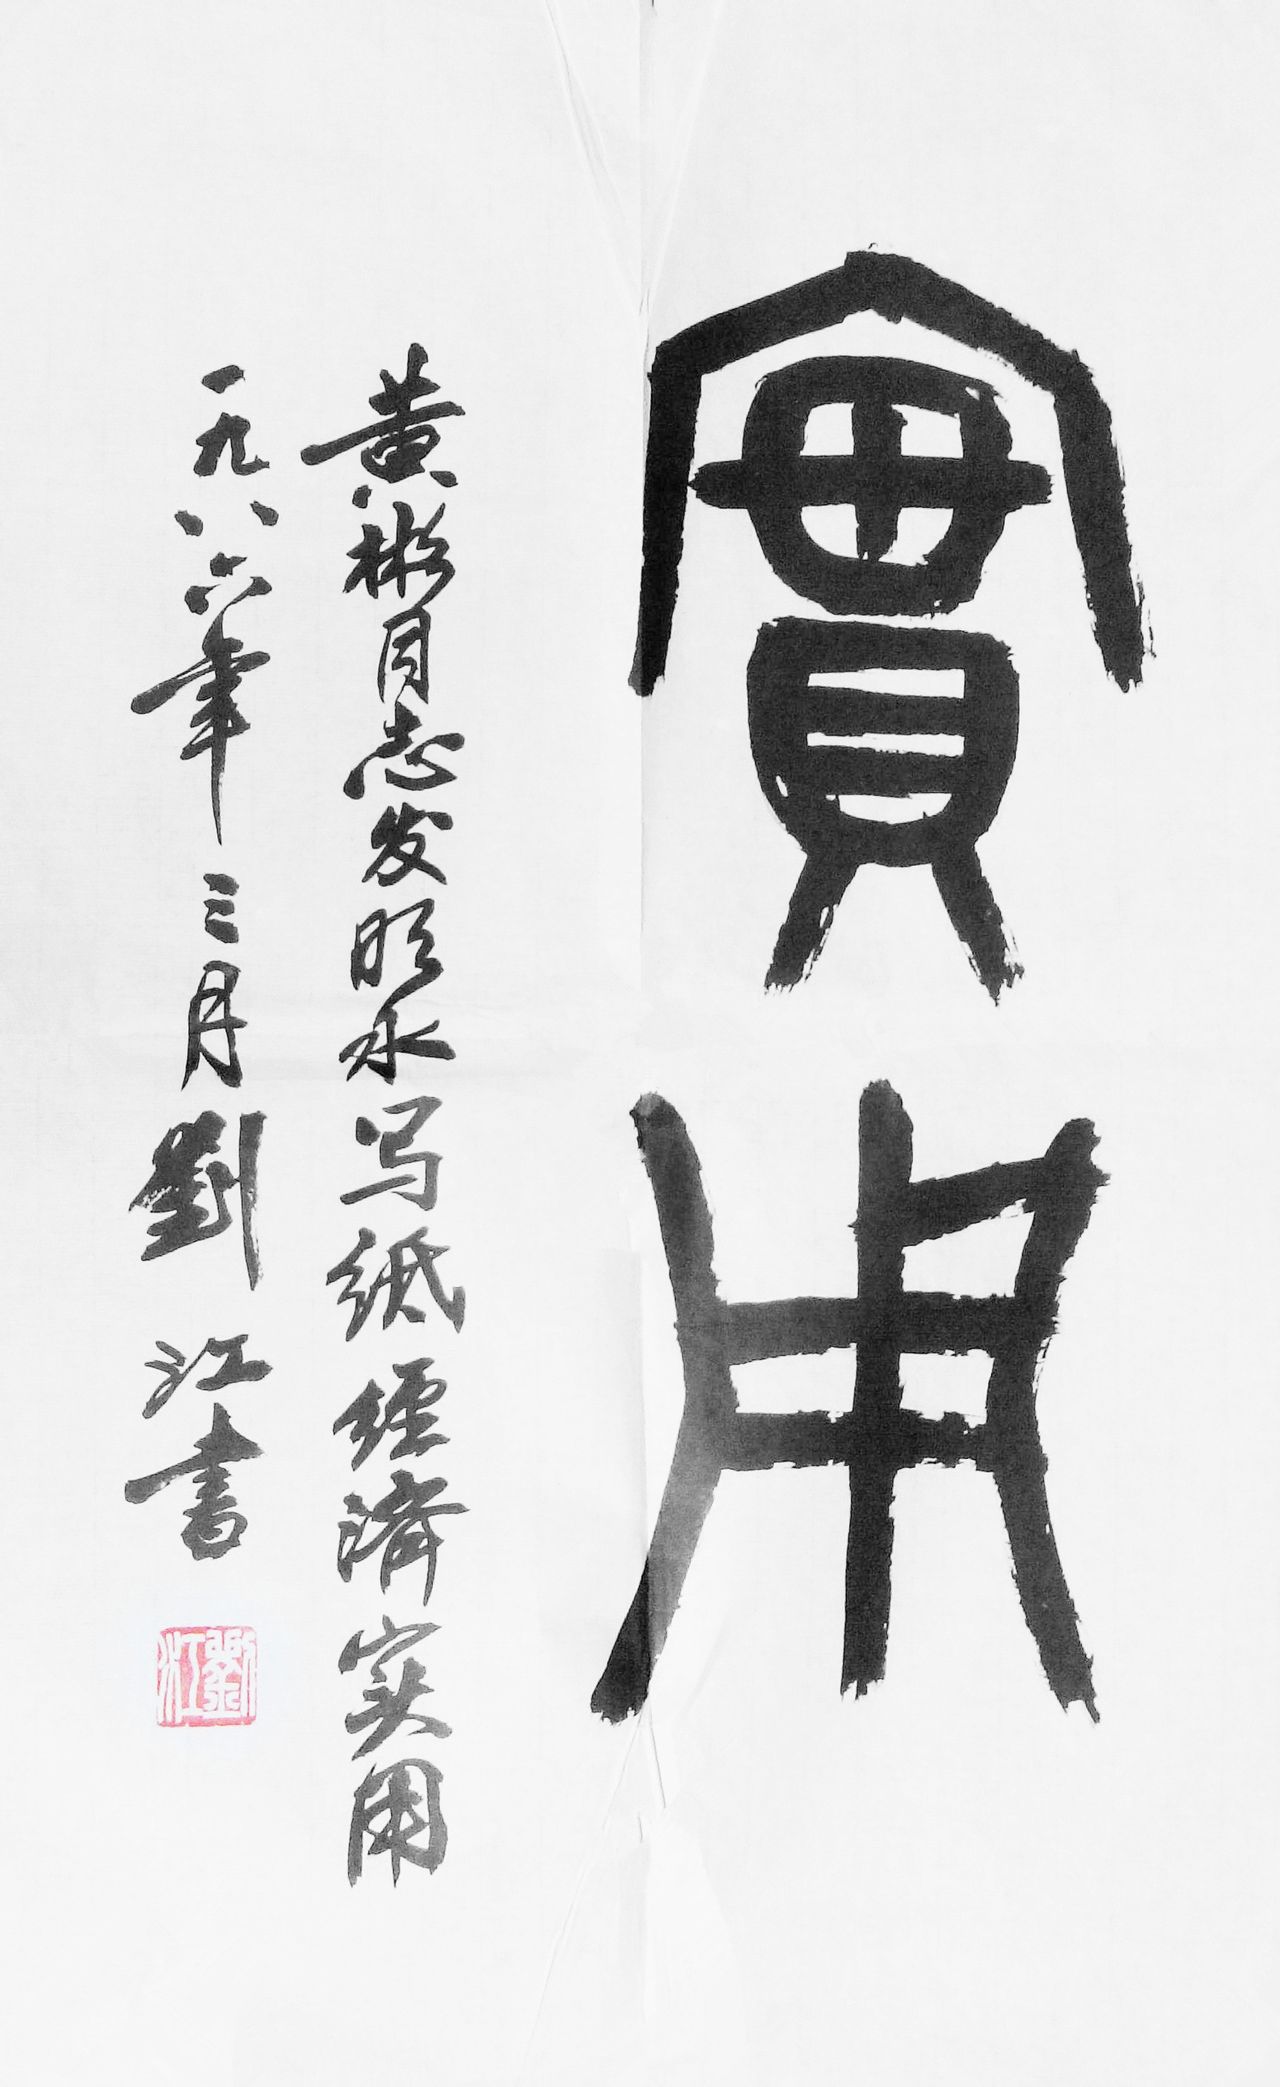 實用
黄彬同志发明水写纸經濟实用
一九八六年三月劉江書
劉江